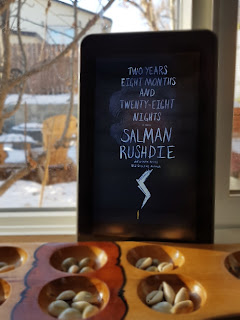 TWO YEARS
EIGHT MONTHS
AND
TWENTY-EIGHT
NIGHTS
SALMAN
RUSHDIE